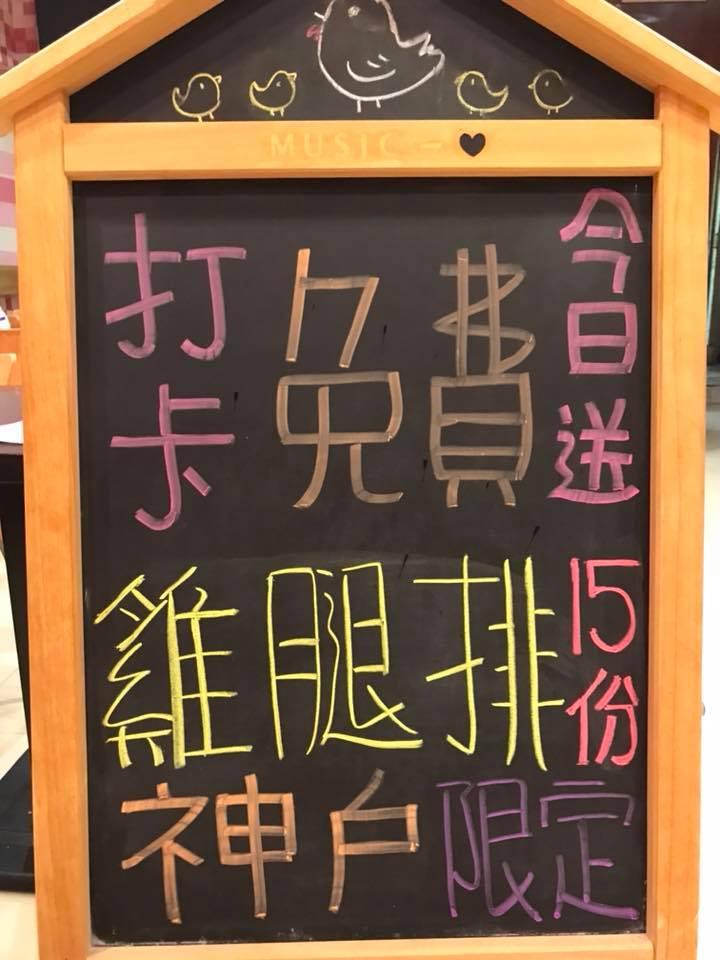 MUSIC
打卡
免費
今日送15份
雞腿排
神戶限定